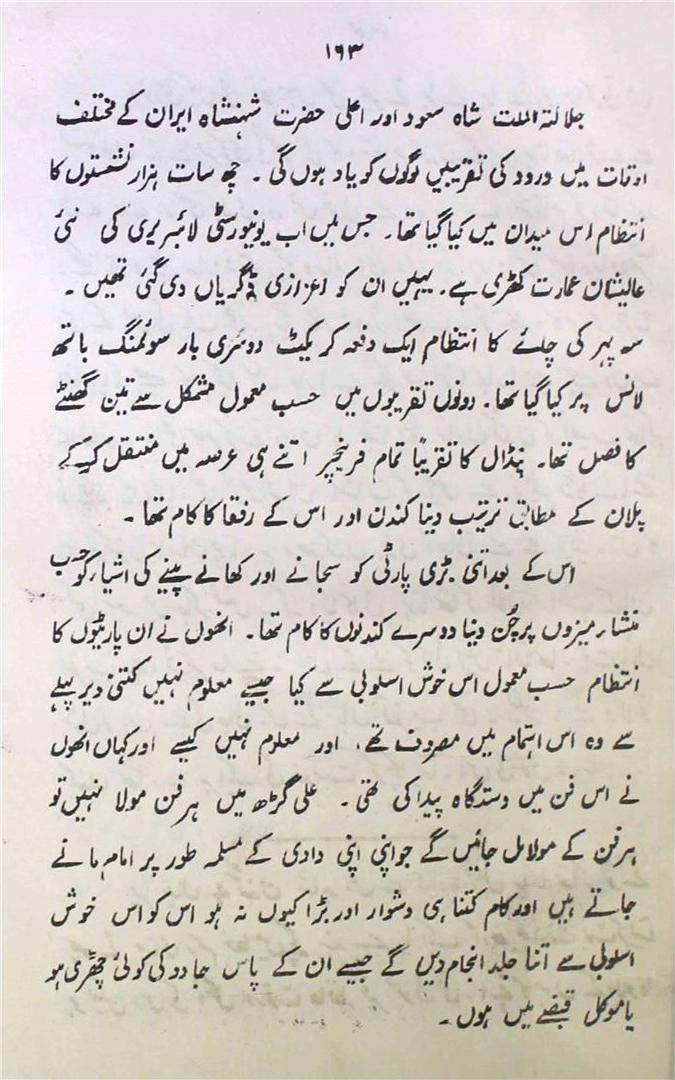 ۱۶۳
جلالتہ الملت شاہ سعود اور اعلی حضرت شہنشاہ ایران کے مختلف
اوقات میں ورود کی تقریبیں لوگوں کو یاد ہوں گی ۔ چھ سات ہزار نشستوں کا
انتظام اس میدان میں کیا گیا تھا۔ جس میں اب یونیورسٹی لائبریری کی نئی
عالیشان عمارت کھڑی ہے۔ یہیں ان کو اعزازی ڈگریاں دی گئی تھیں ۔
سہ پہر کی چائے کا انتظام ایک دفعہ کرکیٹ دوسری بار سوئمنگ باتھ
لانس پر کیا گیا تھا۔ دونوں تقریبوں میں حسب معمول مشکل سے تین گھنٹے
کا فصل تھا۔ پنڈال کا تقریباً تمام فرنیچر اتنے ہی عرصہ میں منتقل کرکے
پلان کے مطابق ترتیب دینا کندن اور اس کے رفقا کا کام تھا ۔
اس کے بعد اتنی بڑی پارٹی کو سجانے اور کھانے پینے کی اشیاء کو حسب
منشاء میزوں پر چُن دینا دوسرے کندنوں کا کام تھا۔ انھوں نے ان پارٹیوں کا
انتظام حسب معمول اس خوش اسلوبی سے کیا جیسے معلوم نہیں کتنی دیر پہلے
سے وہ اس اہتمام میں مصروف تھے، اور معلوم نہیں کیسے اور کہاں انھوں
نے اس فن میں دستگاہ پیدا کی تھی ۔ علی گڑھ میں ہر فن مولا نہیں تو
ہر فن کے مولا مل جائیں گے جو اپنی اپنی وادی کے مسلمہ طور پر امام مانے
جاتے ہیں اور کام کتنا ہی دشوار اور بڑا کیوں نہ ہو اس کو اس خوش
اسلوبی سے اتنا جلد انجام دیں گے جیسے ان کے پاس جادو کی کوئی چھڑی ہو
یا موکل قبضے میں ہوں ۔